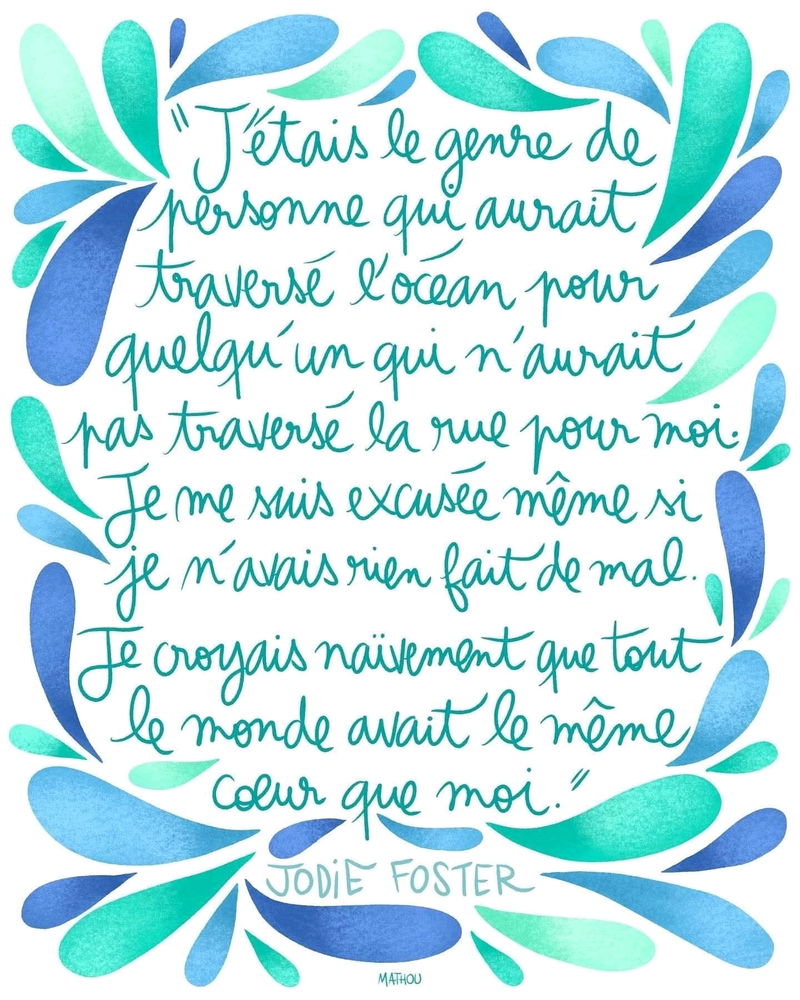 "J'étais le genre de
personne qui aurait
traversé l'océan pour
quelqu'un qui n'aurait
pas traversé la rue pour moi.
Je me suis excusée même si
je n'avais rien fait de mal.
Je croyais naïvement que tout
le monde avait le même
cœur que moi."
JODIE FOSTER
MATHOU